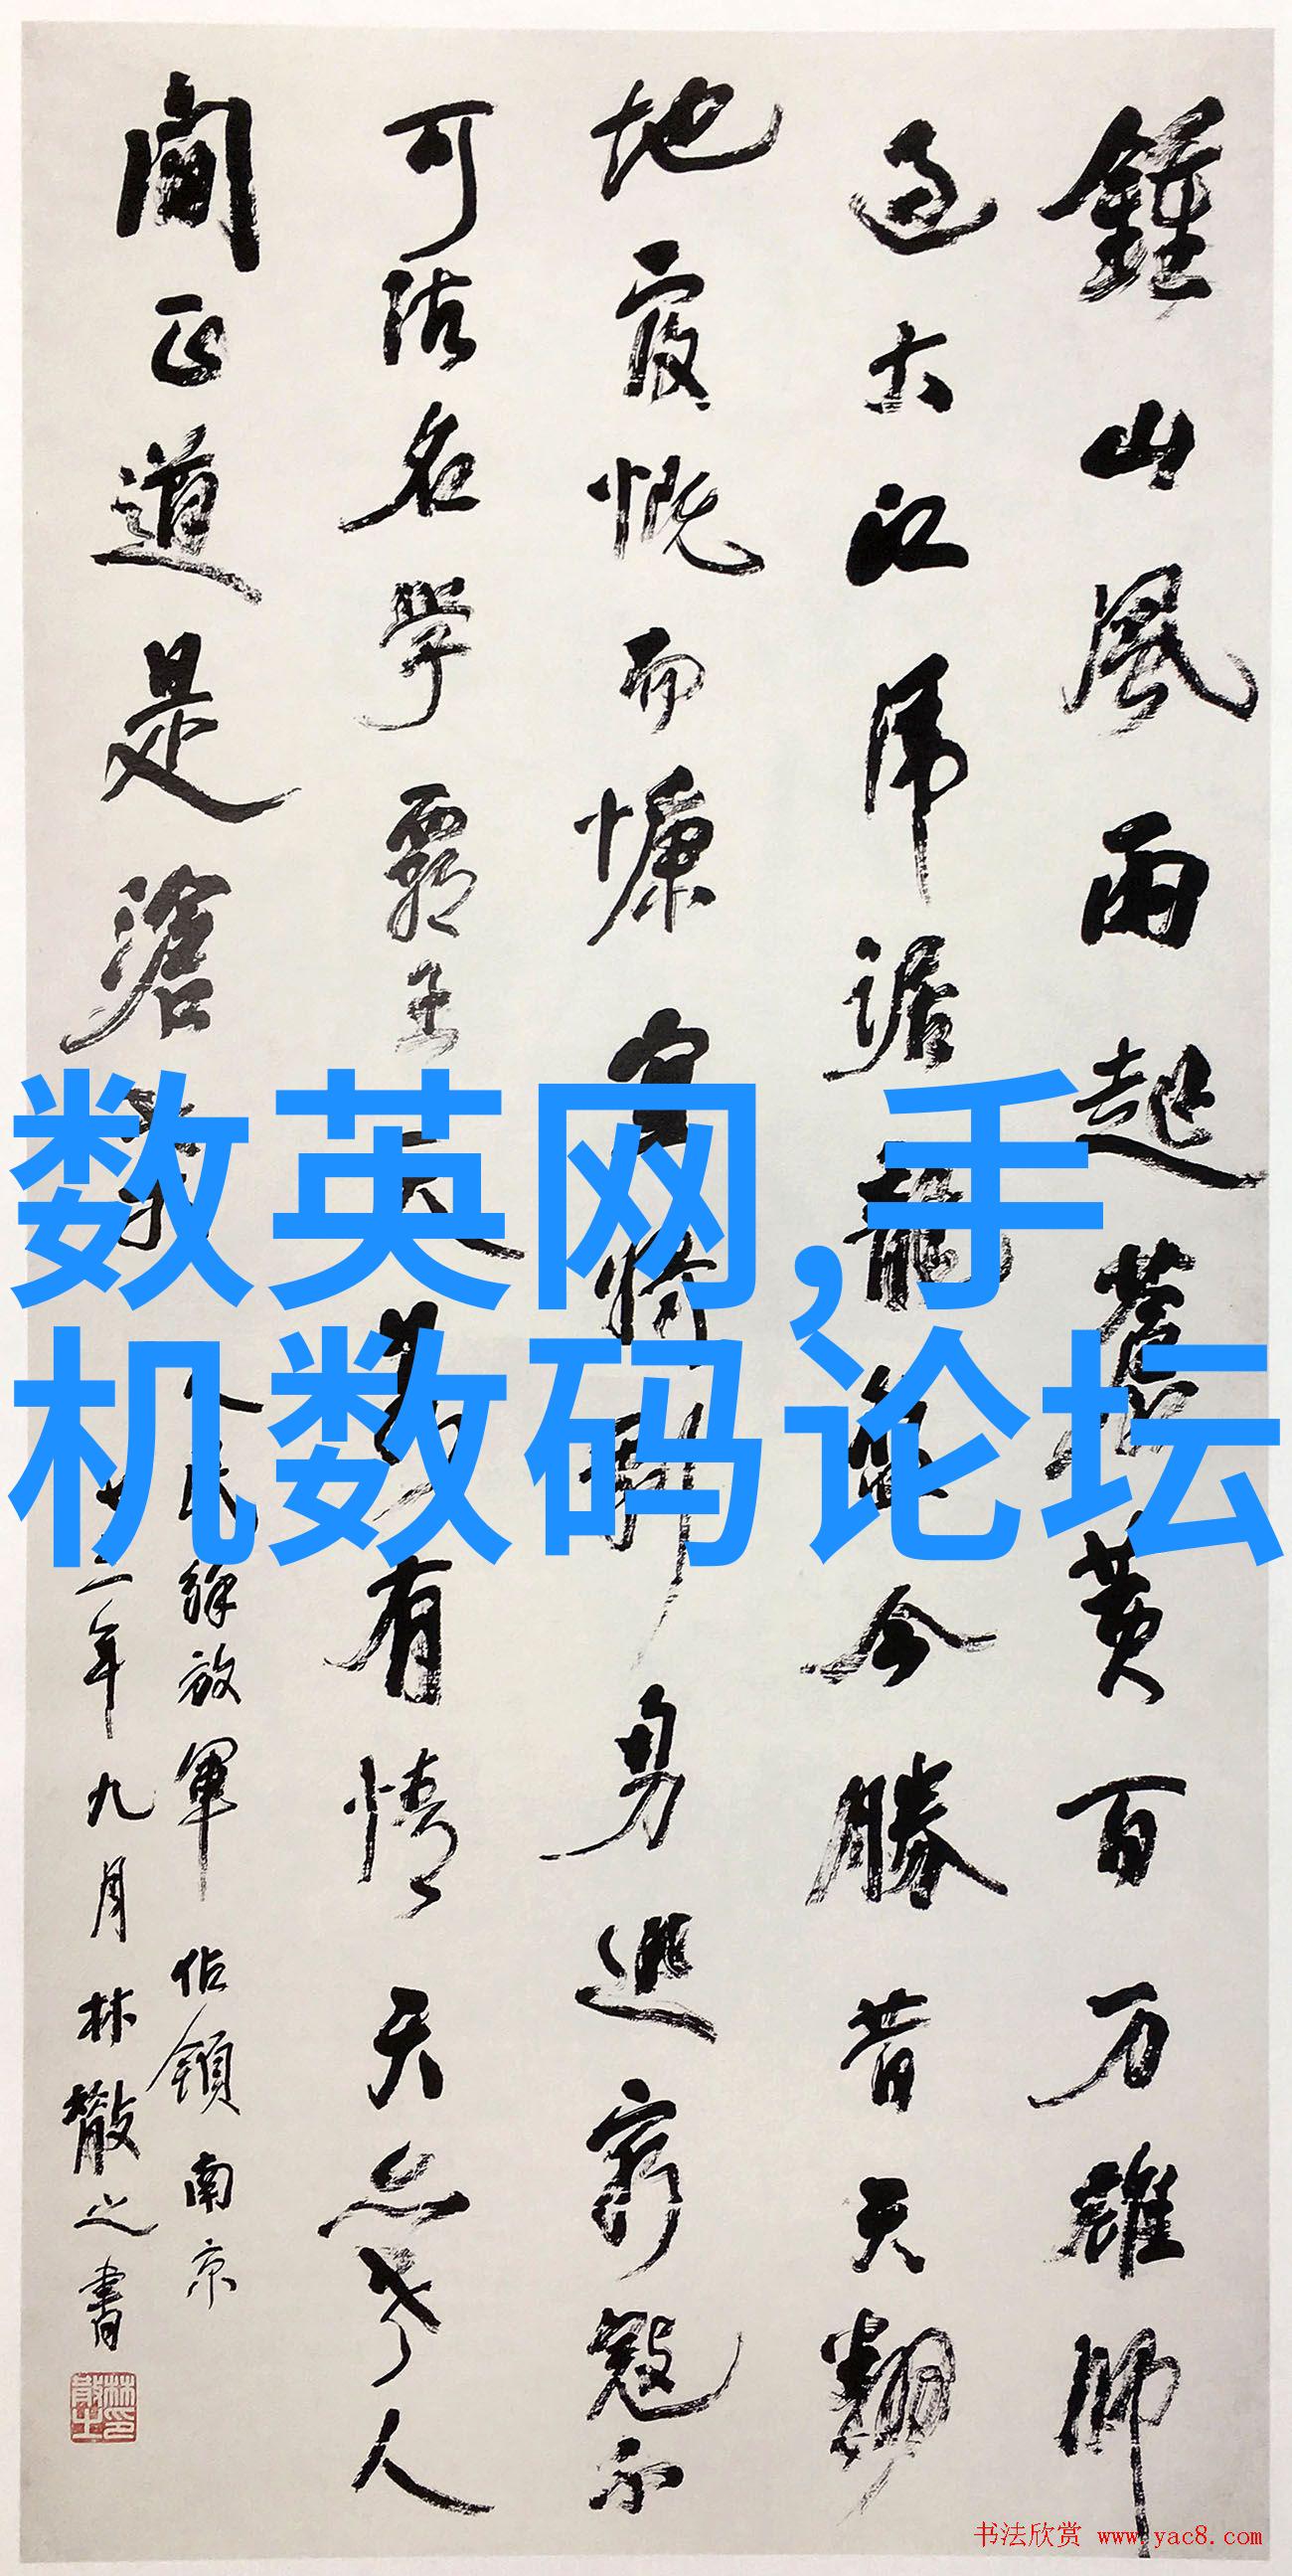 鍾山風雨起蒼黄百万雄師
過大江虎踞龍盤今勝昔天翻
地覆慨而慷宜將剩勇追窮寇不
可沽名學霸王天若有情天亦老人
間正道是滄桑
人民解放軍佔領南京
三年九月林散之書
林散之印
数英网,手
机数码论坛
书法欣赏 www.yac8.com